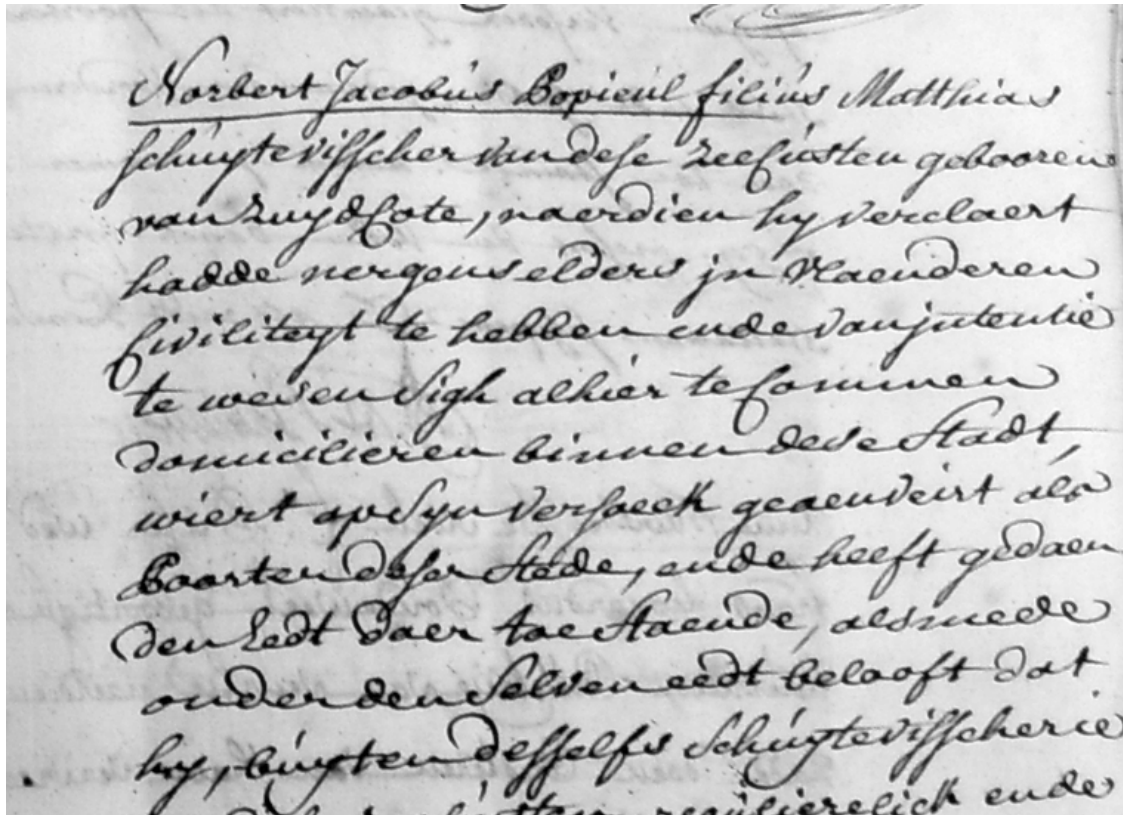 Norbert Jacobus Popieul filius Matthias
schuytevisscher van dese zeecusten gebooren
van Zuydcote, naerdien hy verclaert
hadde nergens elders in vlaenderen
Civiliteyt te hebben ende van intentie
te wesen sigh alhier te Commen
domicilieren binnen dese stadt,
wiert op syn versoeck geaenveirt als
Poorter deser stede, ende heeft gedaen
den Eedt daer toe staende, alsmede
onder den selven eedt belooft dat
hy, buyten desselfs schuytevisscherie
regulierelick ende